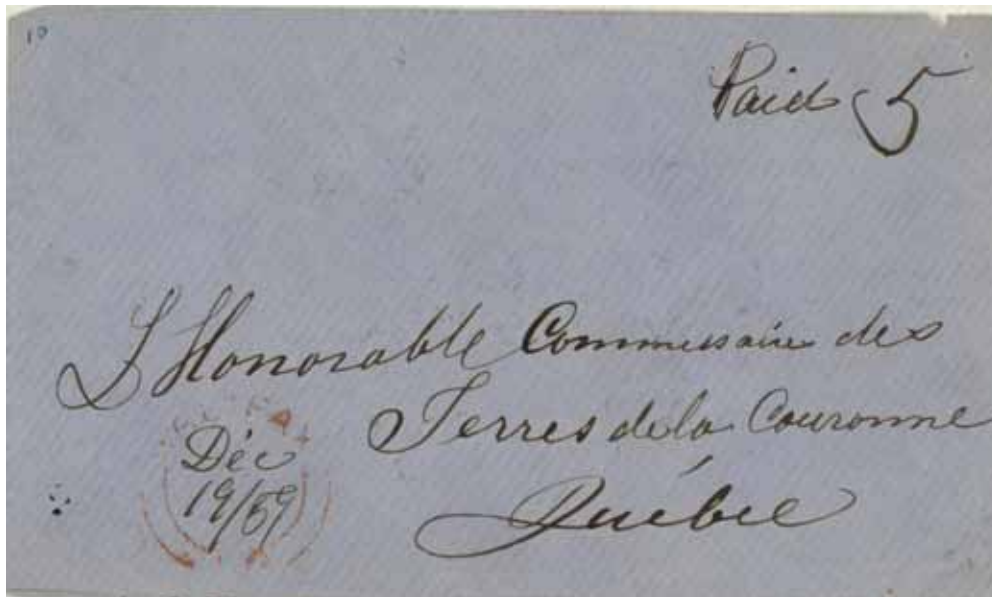 10
Paid 5
L'Honorable Commissaire des
Terres de la Couronne
Québec
Déc
19/59